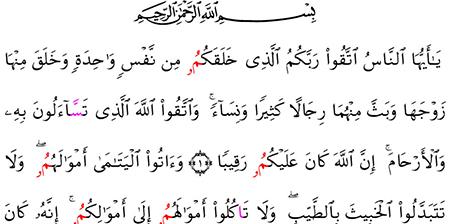 بِسْمِ ٱللَّهِ ٱلرَّحْمَٰنِ ٱلرَّحِيمِ
يَـٰٓأَيُّهَا ٱلنَّاسُ ٱتَّقُوا۟ رَبَّكُمُ ٱلَّذِى خَلَقَكُمُۥ مِن نَّفْسٍ وَٰحِدَةٍ وَخَلَقَ مِنْهَا
زَوْجَهَا وَبَثَّ مِنْهُمَا رِجَالًا كَثِيرًا وَنِسَآءً ۚ وَٱتَّقُوا۟ ٱللَّهَ ٱلَّذِى تَسَّآءَلُونَ بِهِۦ
وَٱلْأَرْحَامَ ۚ إِنَّ ٱللَّهَ كَانَ عَلَيْكُمُۥ رَقِيبًا ﴿١﴾ وَءَاتُوا۟ ٱلْيَتَـٰمَىٰٓ أَمْوَٰلَهُمُۥ ۖ وَلَا
تَتَبَدَّلُوا۟ ٱلْخَبِيثَ بِٱلطَّيِّبِ ۖ وَلَا تَاكُلُوٓا۟ أَمْوَٰلَهُمُۥٓ إِلَىٰٓ أَمْوَٰلِكُمُۥٓ ۚ إِنَّهُۥ كَانَ